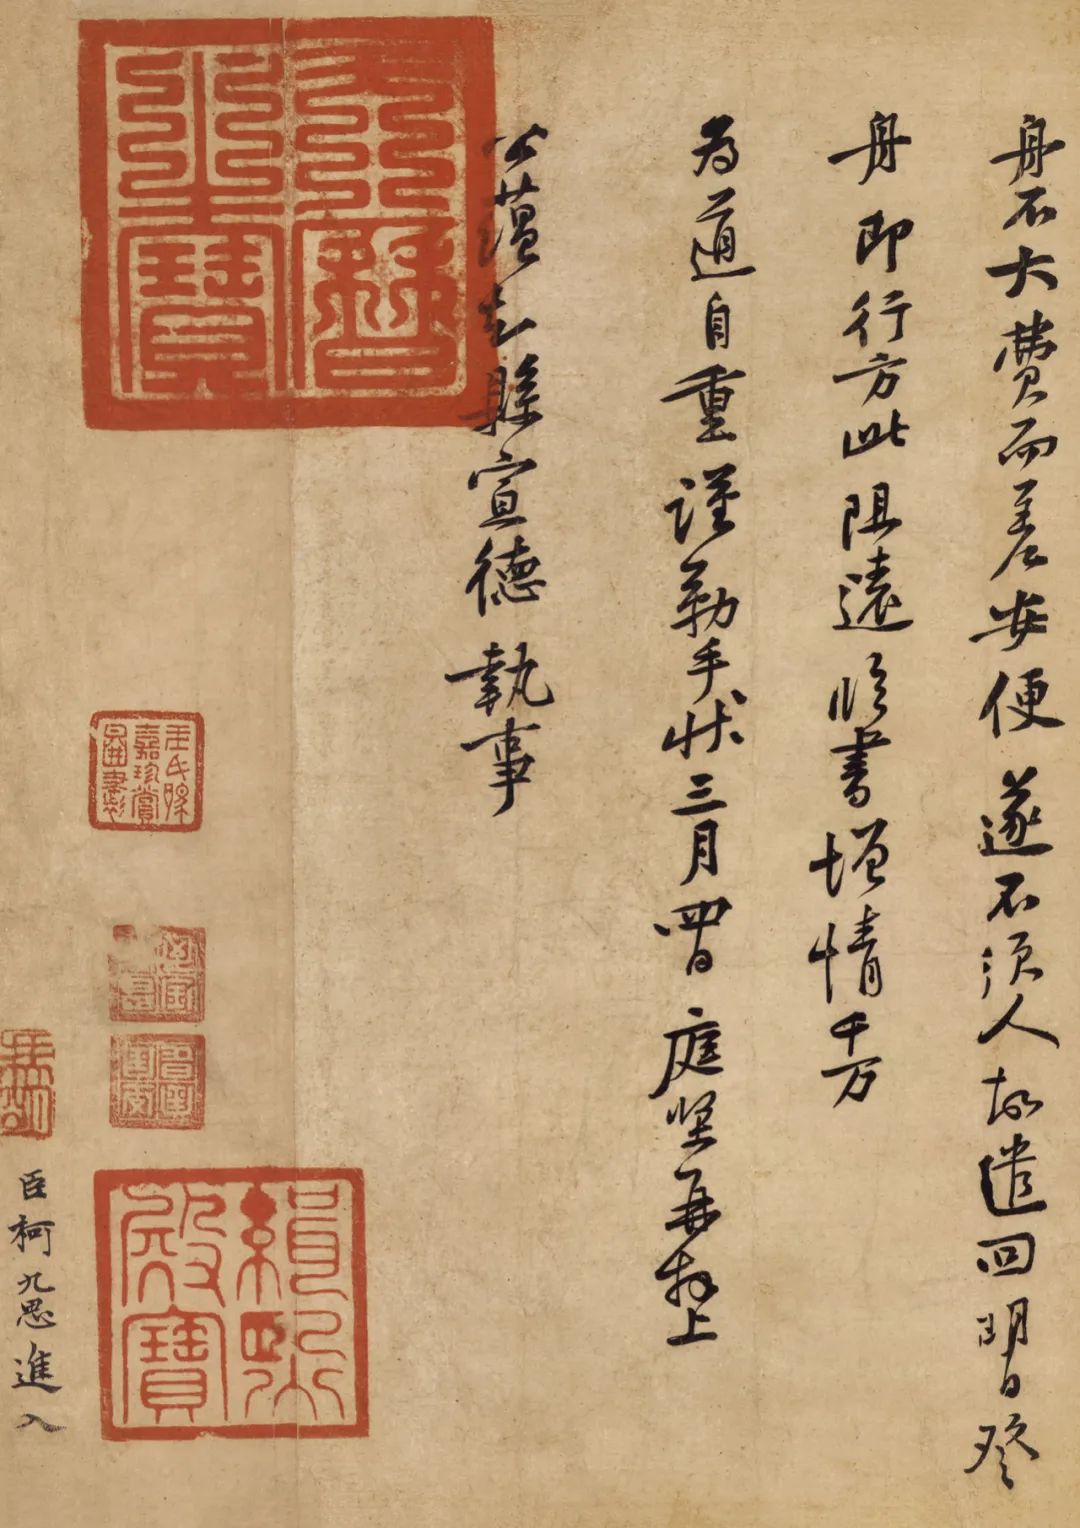 舟不大費而差安便遂不須人故遣回明日發
舟即行方此阻遠臨書增情千万
為道自重謹勒手狀三月四日庭堅再拜上
公蘊知縣宣德執事
天曆之寶
緝熙殿寶
臣柯九思進入